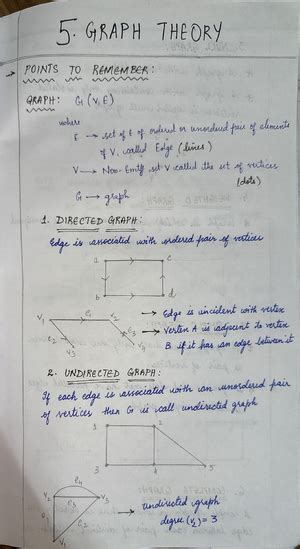 5. GRAPH THEORY
→ POINTS TO REMEMBER:
GRAPH: G(V,E)
where
E → set of E of ordered or unordered pair of elements
of V called Edge (lines)
V → Non-Empty set V called the set of vertices
(dots)
G → graph
1. DIRECTED GRAPH:
Edge is associated with ordered pair of vertices
a c
b d
V1 e1 V2
→ Edge is incident with vertex
e2 e3
→ Vertex A is adjacent to vertex
V3
B if it has an edge between it
2. UNDIRECTED GRAPH:
If each edge is associated with an unordered pair
of vertices then G is call undirected graph
1 2
3 4 5
e4
V2 e3 V3
→ undirected graph
e2
degree (V2) = 3
V1